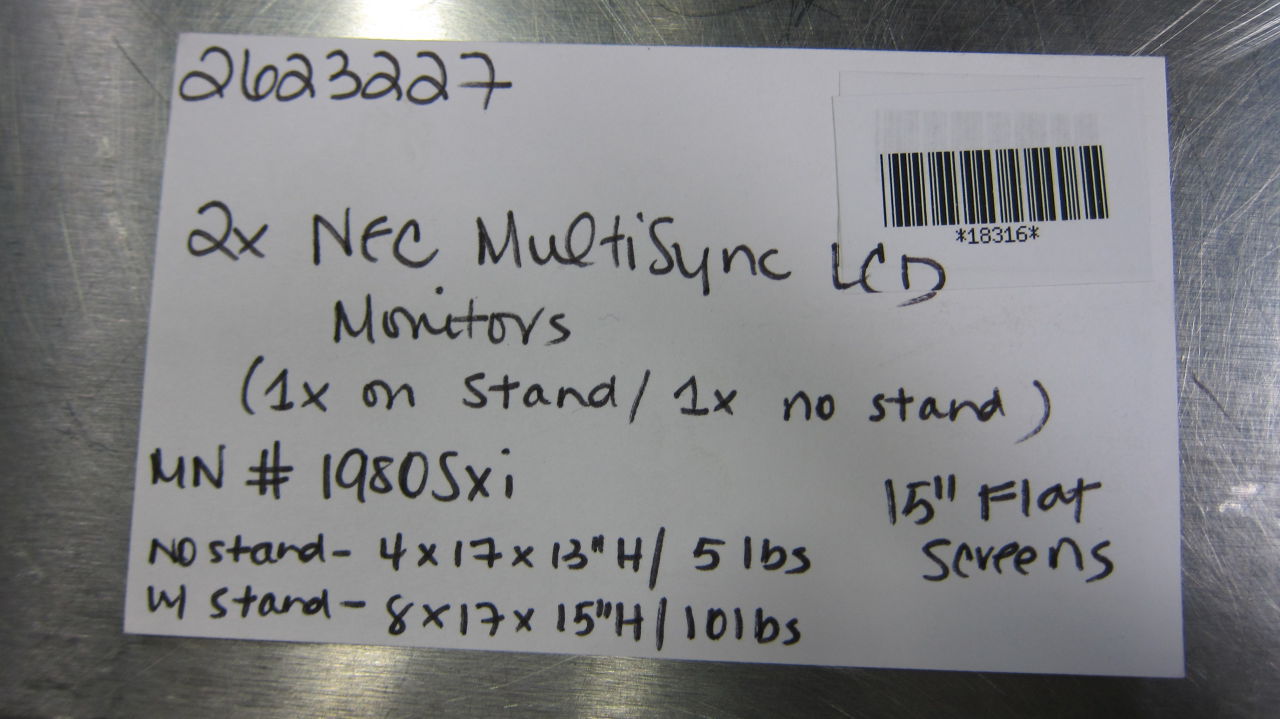 2623227
*18316*
2x NEC MultiSync LCD
Monitors
(1x on stand/ 1x no stand)
MN # 1980Sxi
15" Flat
screens
NO stand- 4x17x13"H/ 5 lbs
W/ stand- 8x17x15"H/10lbs